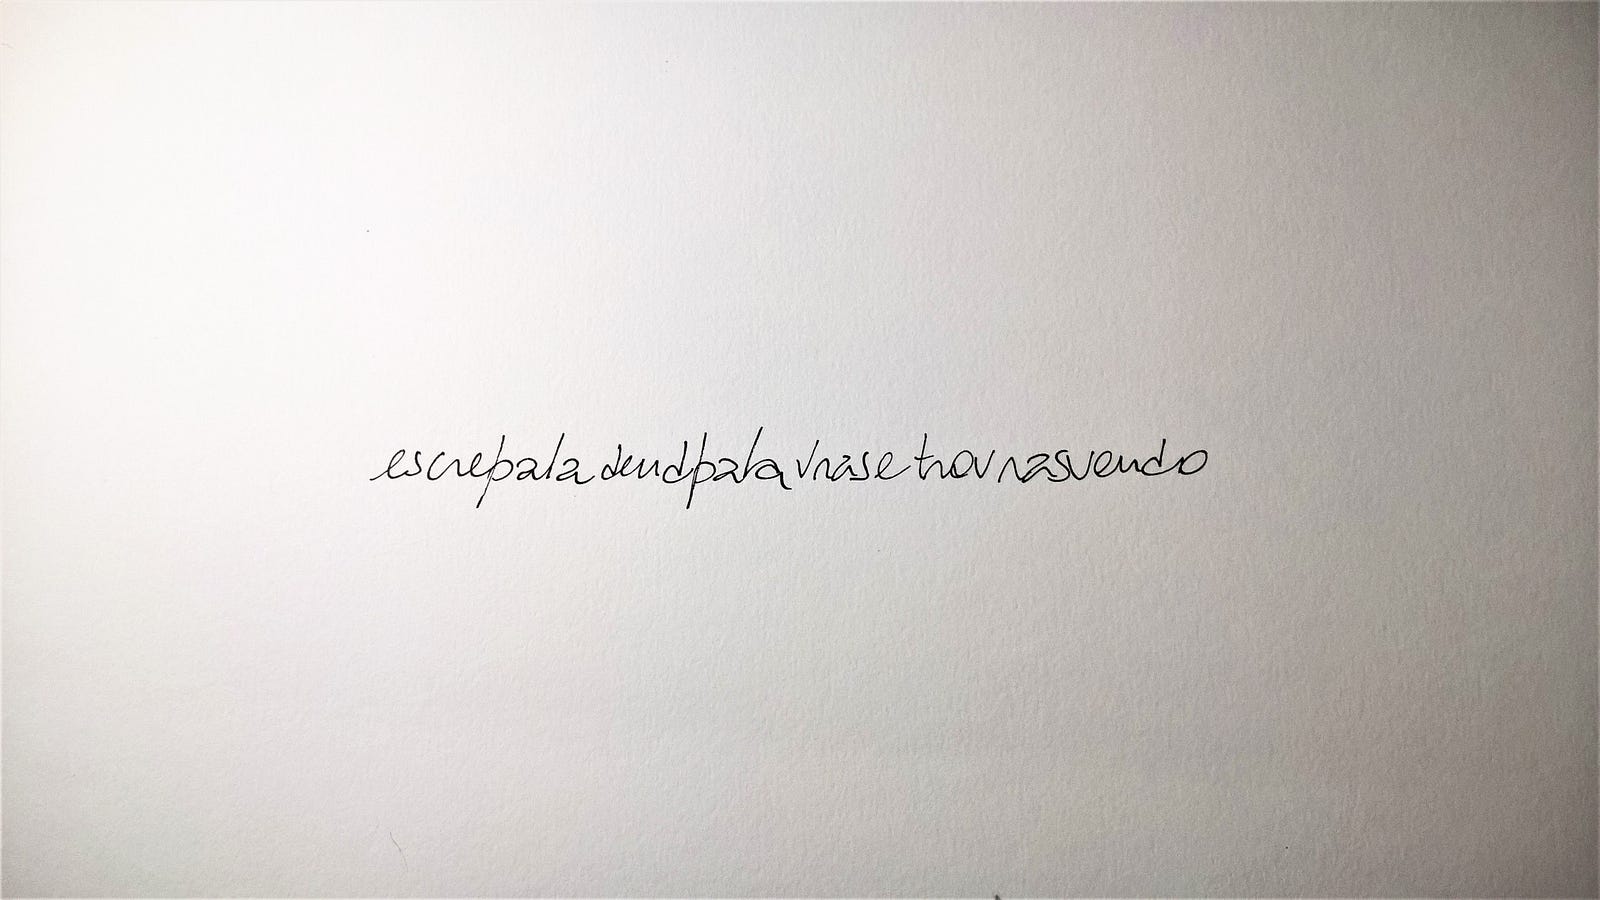 escrepala dendpalavrasetrovrasvendo